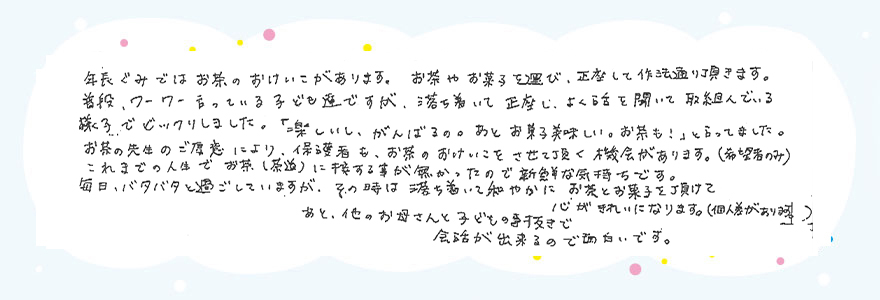 年長ぐみではお茶のおけいこがあります。 お茶やお菓子を運び、正座して作法通り頂きます。
普段、ワーワー言っている子ども達ですが、落ち着いて正座し、よく話を聞いて取組んでいる
様子でビックリしました。「楽しいし、がんばるの。あとお菓子美味しい。お茶も！」と言ってました。
お茶の先生のご厚意により、保護者も、お茶のおけいこをさせて頂く機会があります。(希望者のみ)
これまでの人生でお茶(茶道)に接する事が無かったので新鮮な気持ちです。
毎日、バタバタと過ごしていますが、その時は落ち着いて和やかにお茶とお菓子を頂けて
心がきれいになります。(個人差があります)
あと、他のお母さんと子どもの事抜きで
会話が出来るので面白いです。